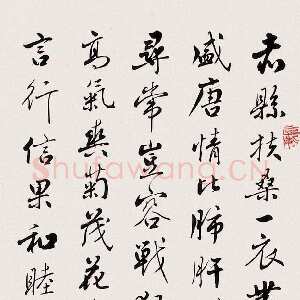 赤縣扶桑一衣帶
盛唐情比肺肝
尋常豈容戰
高氣爽菊茂花
言行信果和睦
Shufawang.CN